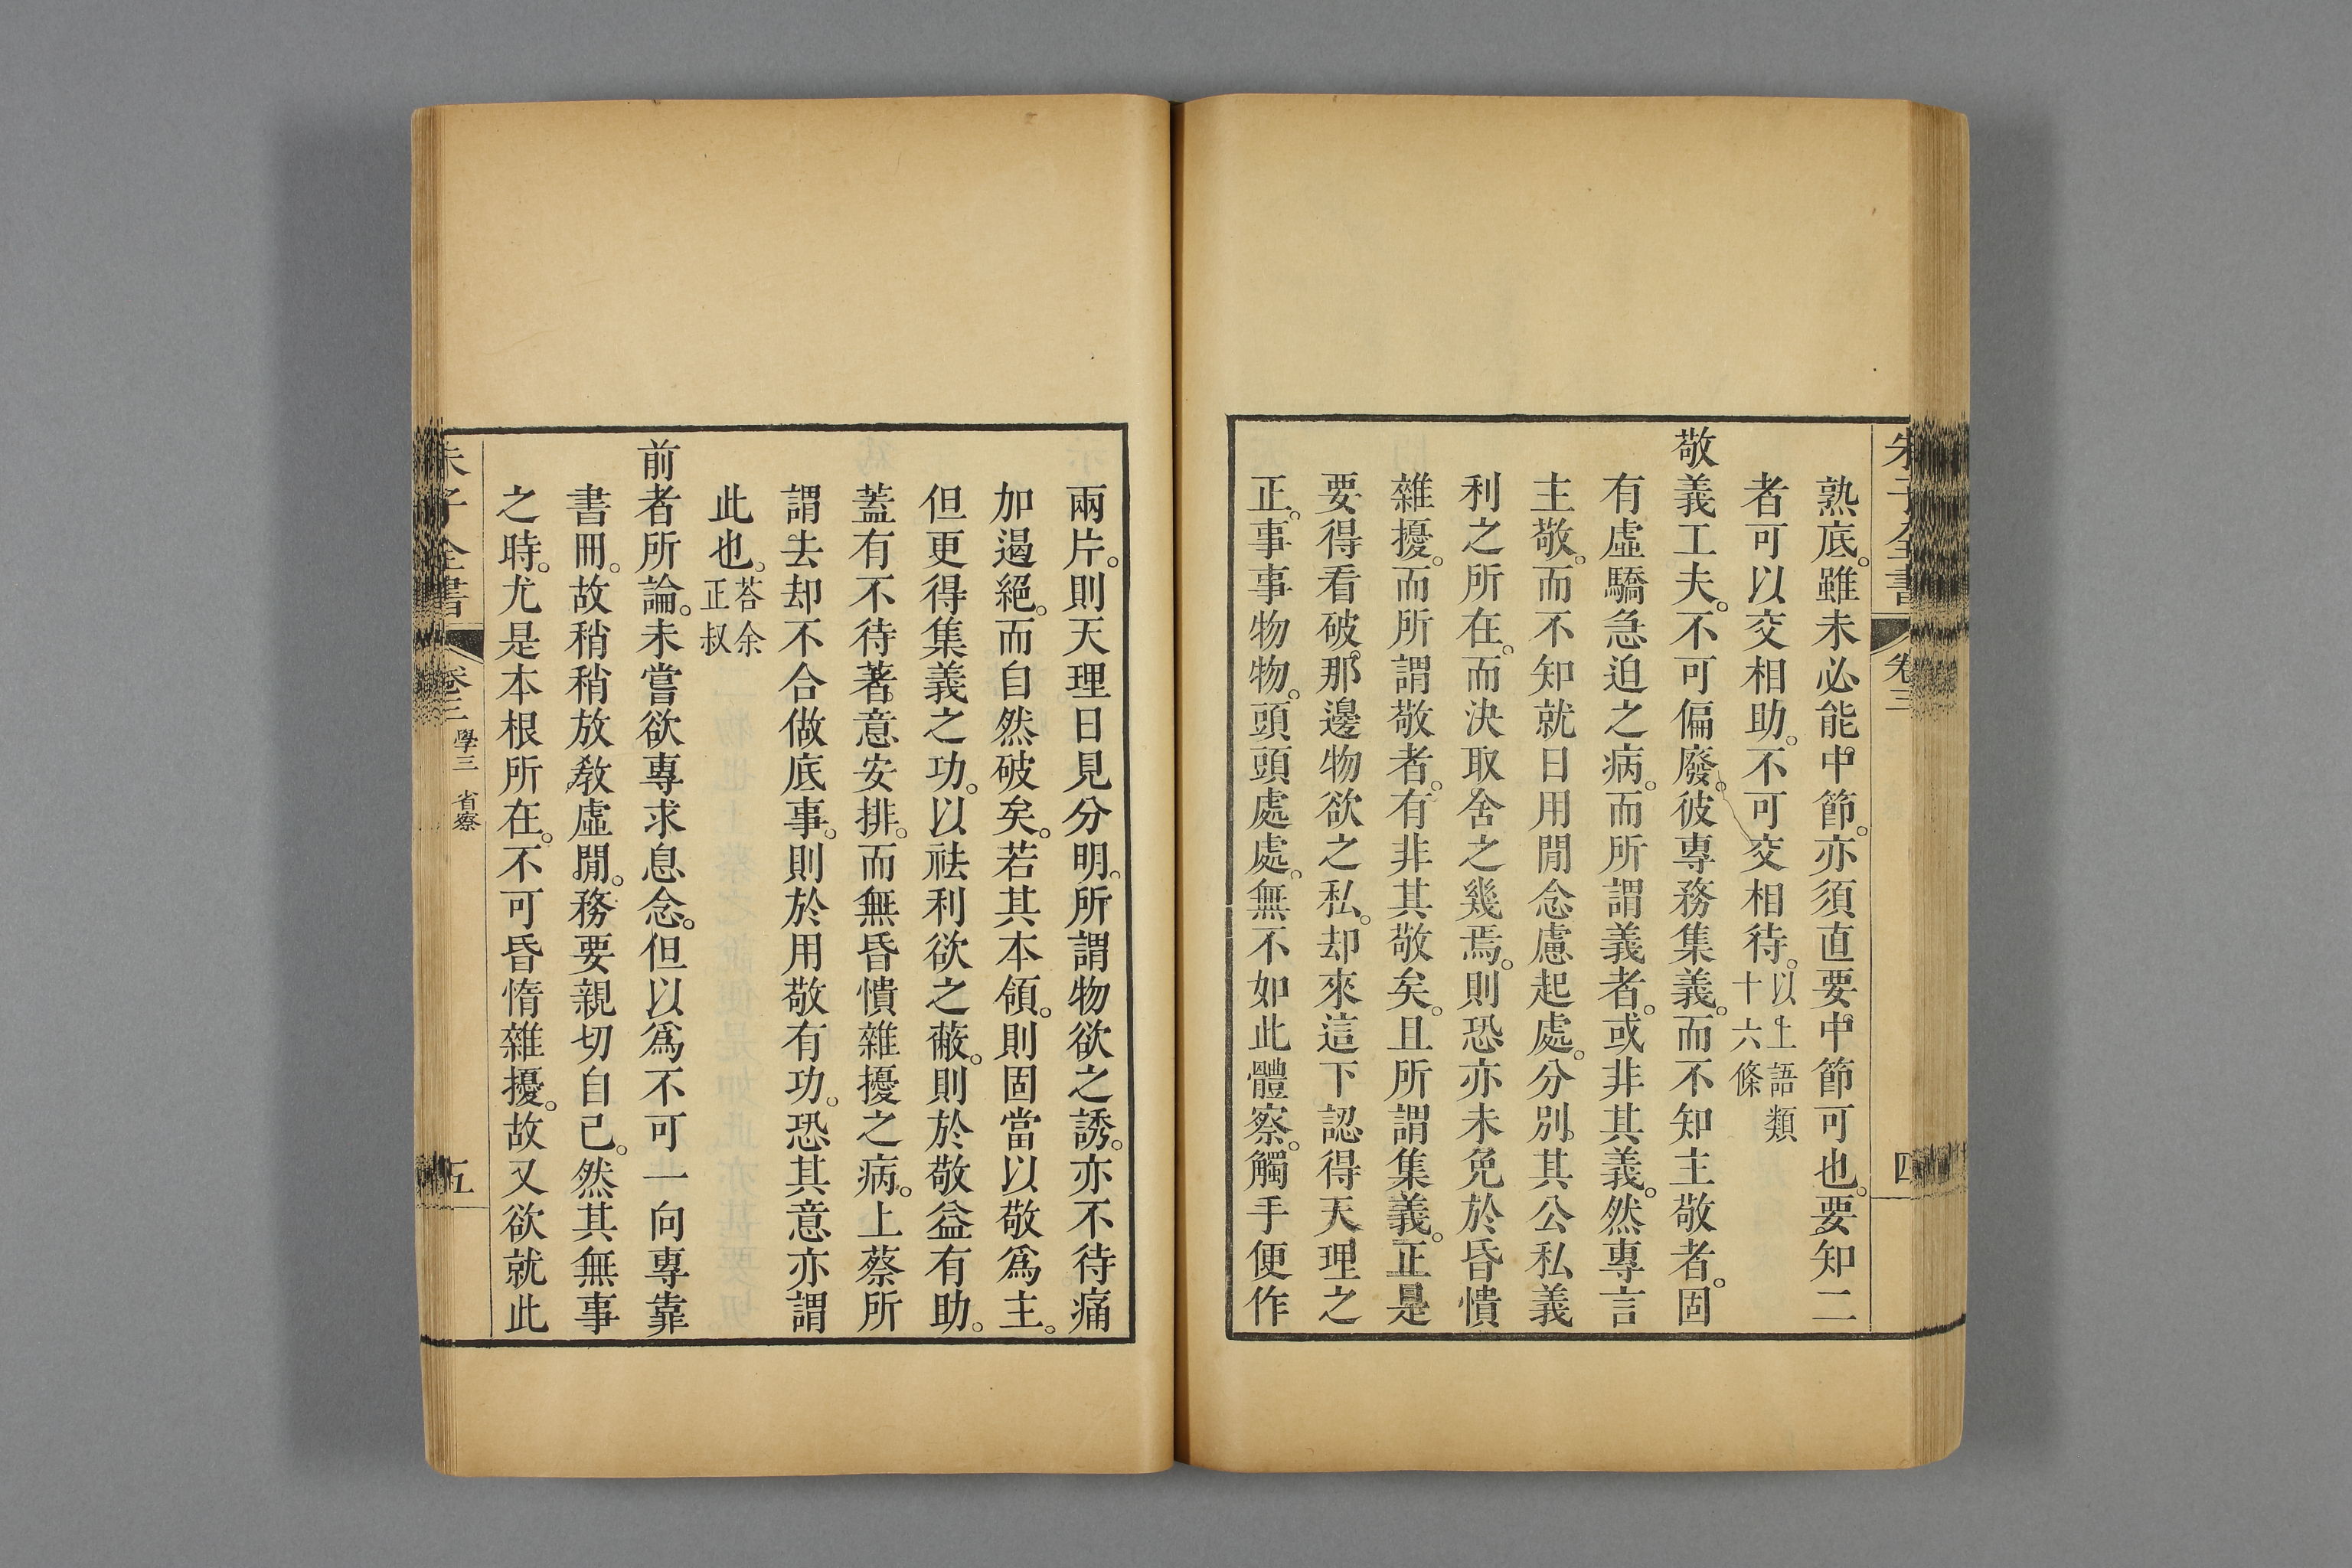 朱子全書 卷三 四
熟底。雖未必能中節。亦須直要中節可也。要知二
者可以交相助。不可交相待。以上語類十六條
敬義工夫。不可偏廢。彼專務集義。而不知主敬者。固
有虛驕急迫之病。而所謂義者。或非其義。然專言
主敬。而不知就日用閒念慮起處。分別其公私義
利之所在。而決取舍之幾焉。則恐亦未免於昏憒
雜擾。而所謂敬者。有非其敬矣。且所謂集義。正是
要得看破那邊物欲之私。却來這下認得天理之
正。事事物物。頭頭處處。無不如此體察。觸手便作
兩片。則天理日見分明。所謂物欲之誘。亦不待痛
加遏絕。而自然破矣。若其本領。則固當以敬爲主。
但更得集義之功。以祛利欲之蔽。則於敬益有助。
蓋有不待著意安排。而無昏憒雜擾之病。上蔡所
謂去却不合做底事。則於用敬有功。恐其意亦謂
此也。荅余正叔
前者所論。未嘗欲專求息念。但以爲不可一向專靠
書冊。故稍稍放敎虛閒。務要親切自己。然其無事
之時。尤是本根所在。不可昏惰雜擾。故又欲就此
朱子全書 卷三 學三 省察 五